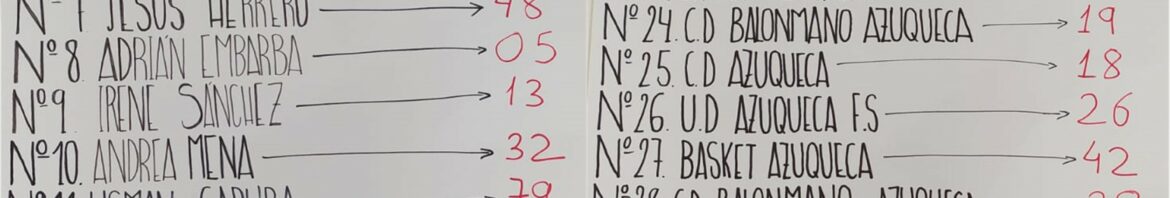 Nº 7 JESÚS HERRERO → 48
Nº 8. ADRIÁN EMBARBA → 05
Nº 9. IRENE SÁNCHEZ → 13
Nº 10. ANDREA MENA → 32
Nº 24. C.D BALONMANO AZUQUECA → 19
Nº 25. C.D AZUQUECA → 18
Nº 26. U.D AZUQUECA F.S → 26
Nº 27. BASKET AZUQUECA → 42
Nº 28. C.D BALONMANO AZUQUECA